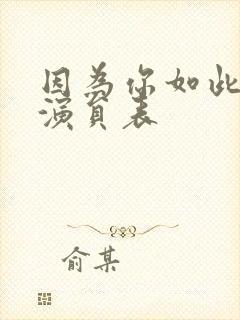 因为你如此
演员表
俞某